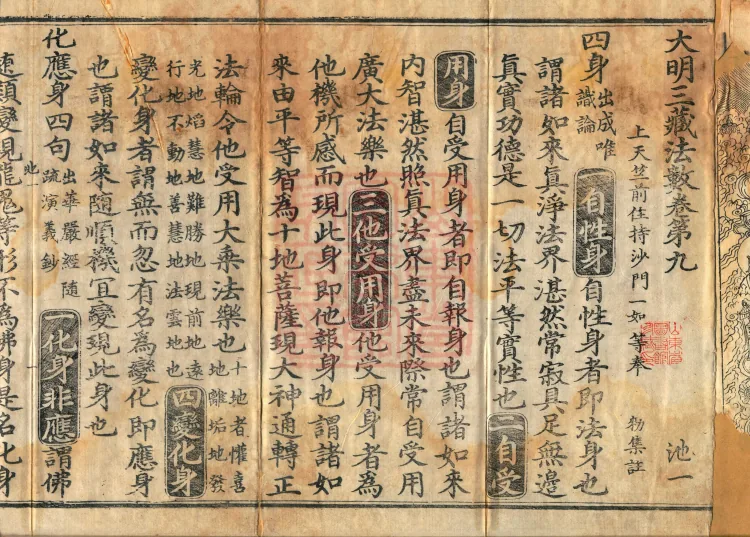 大明三藏法數卷第九
池一
上天竺前住持沙門一如等奉 勑集註
四身出成唯識論 一自性身 自性身者即法身也
謂諸如來真淨法界湛然常寂具足無邊
真實功德是一切法平等實性也 二自受
用身 自受用身者即自報身也謂諸如來
内智湛然照真法界盡未來際常自受用
廣大法樂也 三他受用身 他受用身者為
他機所感而現此身即他報身也謂諸如
來由平等智為十地菩薩現大神通轉正
法輪令他受用大乘法樂也十地者懽喜地離垢地發
光地焰慧地難勝地現前地遠行地不動地善慧地法雲地也 四變化身
變化身者謂無而忽有名為變化即應身
也謂諸如來隨順機宜變現此身也
化應身四句出華嚴經隨疏演義鈔 一化身非應 謂佛
池一
速類變現龍鬼等形不為佛身是名化身